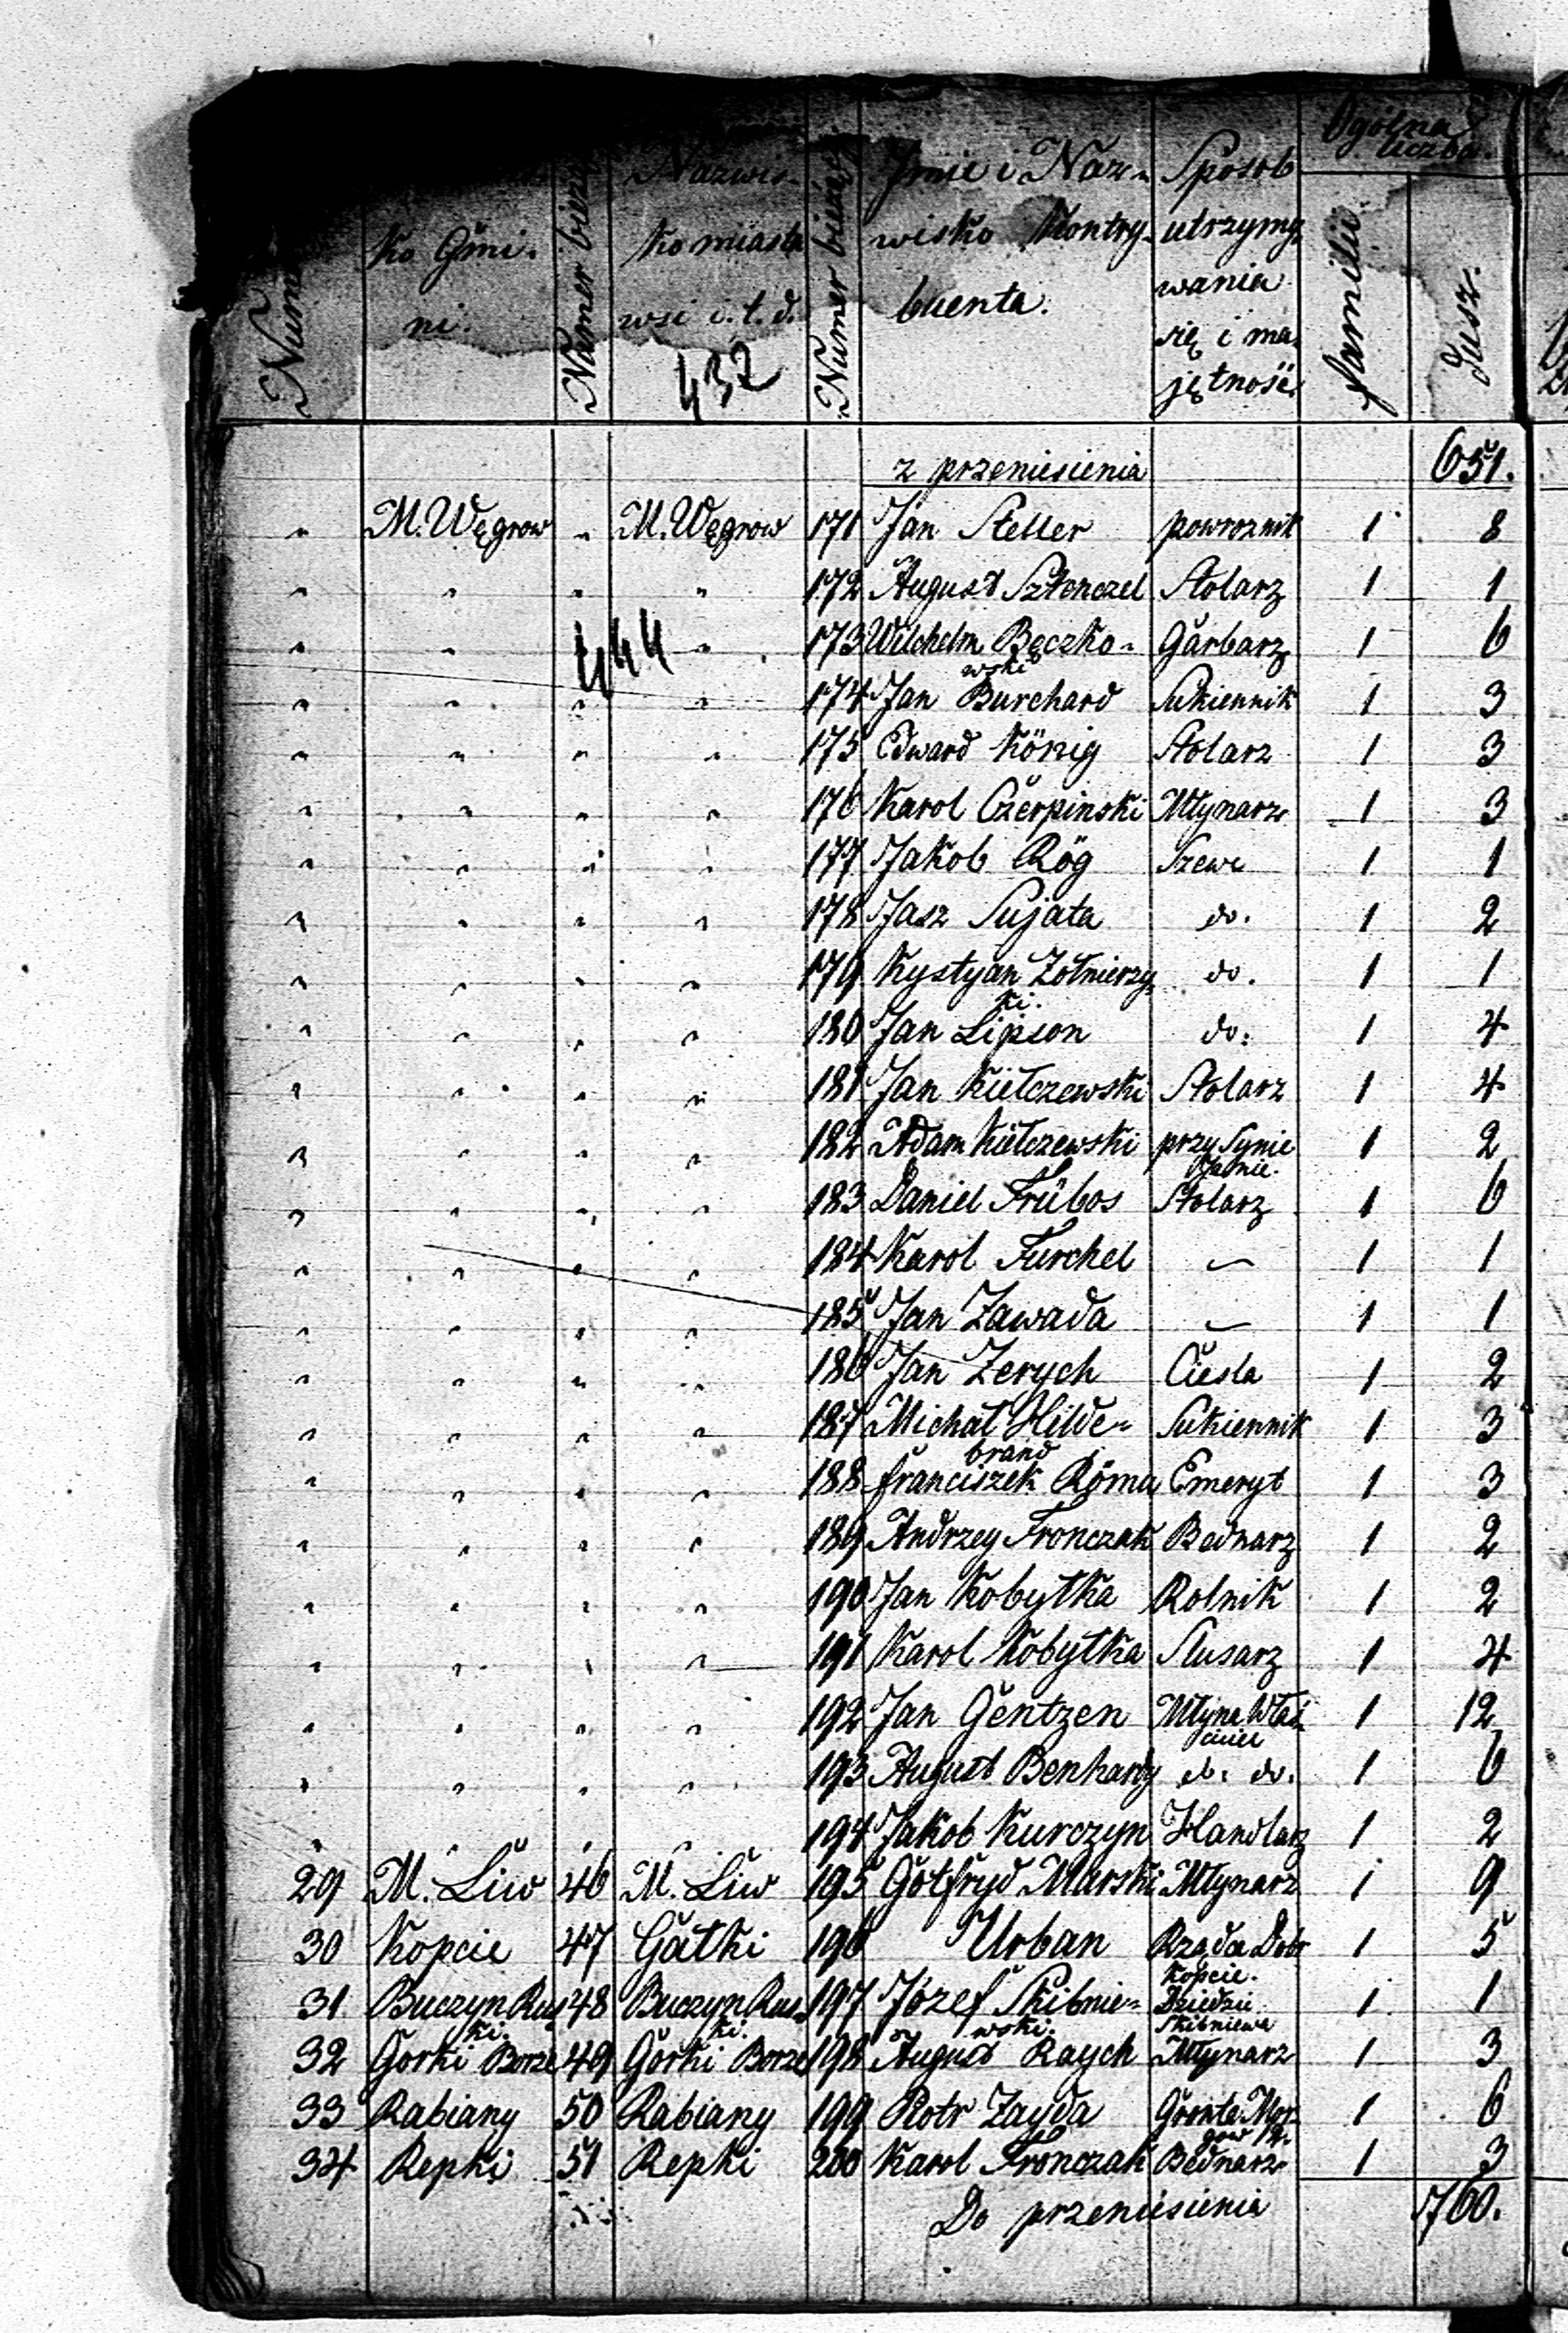 Ogólna
liczba.
Nazwis-
Imie i Naz-
Sposob
ko Gmi-
ko miasta
wisko Kontry-
utrzymy-
ni.
wsi i.t.d.
buenta.
wania
się i ma-
jętność.
Numer
familii
Dusz.
437
z przeniesienia 651.
" M. Węgrow " M. Węgrow 171 Jan Steller powroznik 1 8
" " " " 172 August Sztenczel Stolarz 1 1
" " " " 173 Wilchelm Bęczko- Garbarz 1 6
wski
444
" " " " 174 Jan Burchard Sukiennik 1 3
" " " " 175 Edward König Stolarz 1 3
" " " " 176 Karol Czerpinski Młynarz 1 3
" " " " 177 Jakob Rög Szewc 1 1
" " " " 178 Jasz Sujata do. 1 2
" " " " 179 Kystyan Zołnierzy- do. 1 1
ki.
" " " " 180 Jan Lipson do. 1 4
" " " " 181 Jan Kiełczewski Stolarz 1 4
" " " " 182 Adam Kiełczewski przy Synie 1 2
Janie.
" " " " 183 Daniel Frübos Stolarz 1 6
" " " " 184 Karol Furchel — 1 1
" " " " 185 Jan Zawada — 1 1
" " " " 186 Jan Zerych Ciesla 1 2
" " " " 187 Michał Hilde- Sukiennik 1 3
brand
" " " " 188 franciszek Röma Emeryt 1 3
" " " " 189 Andrzey Fronczak Bednarz 1 2
" " " " 190 Jan Kobyłka Rolnik 1 2
" " " " 191 Karol Kobyłka Slusarz 1 4
" " " " 192 Jan Gentzen Młyna Właś- 1 12
ciciel
" " " " 193 August Benhardy do. do. 1 6
" " " " 194 Jakob Kurczyn Handlarz 1 2
29 M. Liw 46 M. Liw 195 Gotfryd Marski Młynarz 1 9
30 Kopcie 47 Gałki 196 Urban Rządca Dobr 1 5
Kopcie.
31 Buczyn Rus- 48 Buczyn Rus- 197 Józef Skibnie- Dziedzic 1 1
ki. ki. wski. Skibniewa
32 Górki Borze 49 Górki Borze 198 August Raych Młynarz 1 3
33 Rabiany 50 Rabiany 199 Piotr Zayda Grunta Mor- 1 6
gow
34 Repki 51 Repki 200 Karol Fronczak Bednarz 1 3
Do przeniesienia 760.